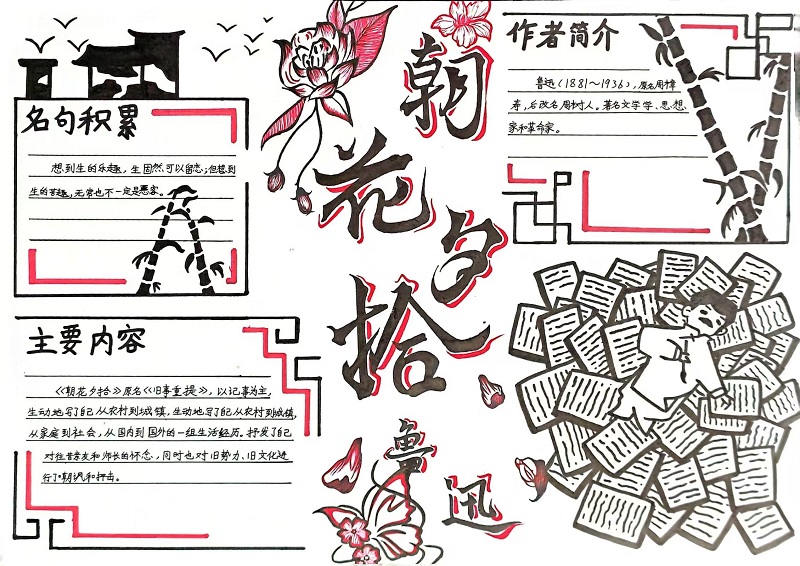 名句积累
想到生的乐趣，生固然可以留恋；但想到
生的苦趣，无常也不一定是恶客。
主要内容
《朝花夕拾》原名《旧事重提》，以记事为主，
生动地写了自己从农村到城镇，生动地写了自己从农村到城镇，
从家庭到社会，从国内到国外的一组生活经历。抒发了自己
对往昔亲友和师长的怀念，同时也对旧势力、旧文化进
行了嘲讽和抨击。
朝花夕拾
鲁迅
作者简介
鲁迅（1881～1936），原名周樟
寿，后改名周树人。著名文学学、思想
家和革命家。